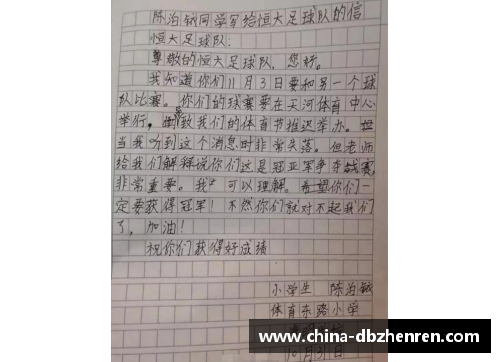 陈泊钺同学写给恒大足球队的信
恒大足球队:
尊敬的恒大足球队,您好。
我知道你们11月3日要和另一个球
队比赛。你们的球赛要在天河体育中心
举行,导致我们的体育节推迟举办。
当我听到这个消息时非常失落。但老师
给我们解释说你们这是冠亚军争夺战赛,
非常重要。我可以理解。希望你们一
定要获得冠军!不然你们就对不起我们
了,加油!
祝你们获得好成绩
小学生 陈泊钺
体育东路小学
10月31日
www.china-dbzhenren.com